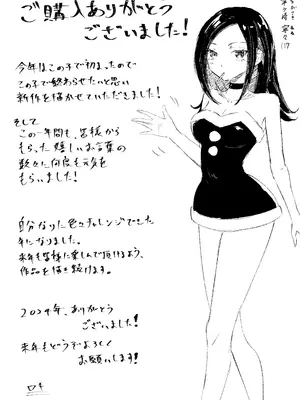 ご購入ありがとう
ございました!
今年はこの子で初まったので
この子で終わらせたいと思い
新作を描かせていただきました!
そして
この一年間も、皆様から
もらった嬉しいお言葉の
数々に何度も元気を
もらいました!
自分なりに色々チャレンジできた
年になりました。
来年も皆様に楽しんで頂けるよう、
作品を描き続けます。
2024年、ありがとう
ございました!
来年もどうぞよろしく
お願いします!